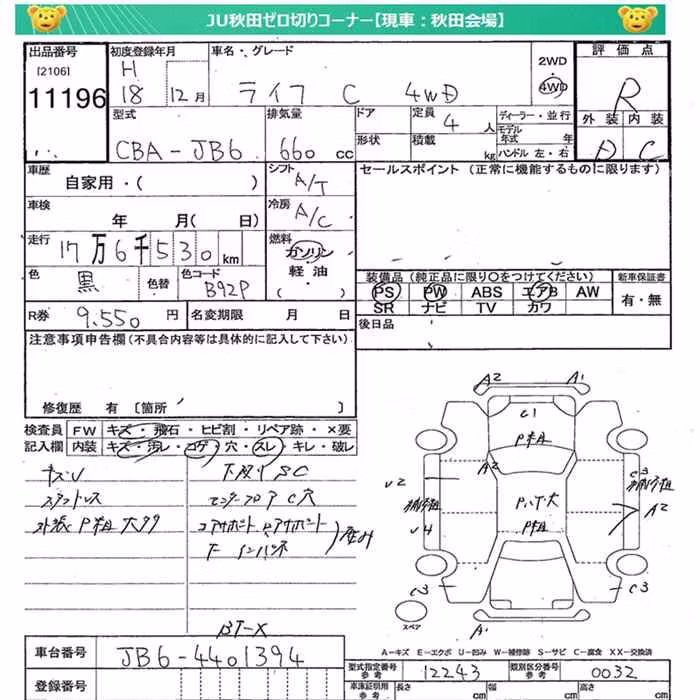 JU秋田ゼロ切りコーナー【現車:秋田会場】
出品番号 初度登録年月 車名・グレード 2WD 評価点
[2106] H 4WD
11196 18 12月 ライフ C 4WD R
型式 排気量 ドア 定員 4 人 ディーラー・並行 外装 内装
モデル年式 年
CBA-JB6 660 cc 形状 積載 kg ハンドル 左・右 D C
車歴 シフト セールスポイント (正常に機能するものに限ります)
自家用・( ) A/T
車検 冷房
年 月( 日) A/C
走行 燃料
17万6千530km ガソリン
色 黒 色替 色コード 軽油 装備品(純正品に限り○をつけてください) 新車保証書
B92P ( ) PS PW ABS エアB AW 有・無
SR ナビ TV カワ
R券 9.550 円 名変期限 月 日 後日品
注意事項申告欄(不具合内容等は具体的に記入して下さい)
修復歴 有 [箇所 ]
検査員 FW キズ・飛石・ヒビ割・リペア跡・×要
記入欄 内装 キズ・汚レ・コゲ・穴・スレ・キレ・破レ
A2 A1
C1
P粗
下廻りSC
A2
U2
スタットレス センターフロア C穴
A2
外装 P粗 大多 コアサポート
U4
P粗
インパネ
C3 C3
スペア
A1
A-キズ E-エクボ U-凹み W-補修跡 S-サビ C-腐食 XX-交換済
車台番号 JB6-4401394 型式指定番号 参考 12243 類別区分番号 参考 0032
登録番号 車庫証明用 参考 長さ cm 幅 cm 高さ cm